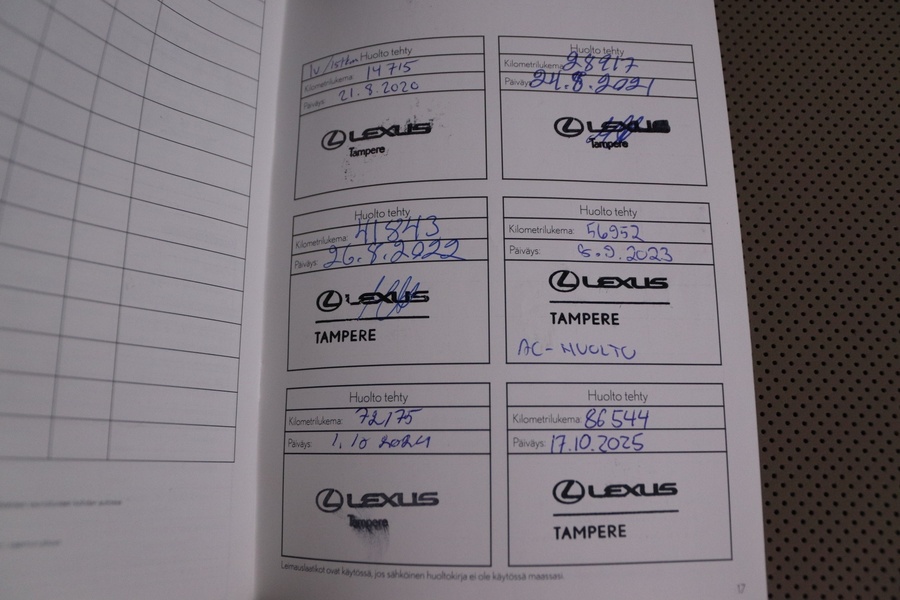 Huolto tehty
1v/15tkm
Kilometrilukema: 14715
Päiväys: 21.8.2020
LEXUS
Tampere
Huolto tehty
Kilometrilukema: 28917
Päiväys: 24.8.2021
LEXUS
Tampere
Huolto tehty
Kilometrilukema: 41843
Päiväys: 26.8.2022
LEXUS
TAMPERE
Huolto tehty
Kilometrilukema: 56952
Päiväys: 5.9.2023
LEXUS
TAMPERE
AC-HUOLTO
Huolto tehty
Kilometrilukema: 72175
Päiväys: 1.10 2024
LEXUS
Tampere
Huolto tehty
Kilometrilukema: 86544
Päiväys: 17.10.2025
LEXUS
TAMPERE
Leimauslaatikot ovat käytössä, jos sähköinen huoltokirja ei ole käytössä maassasi.
17